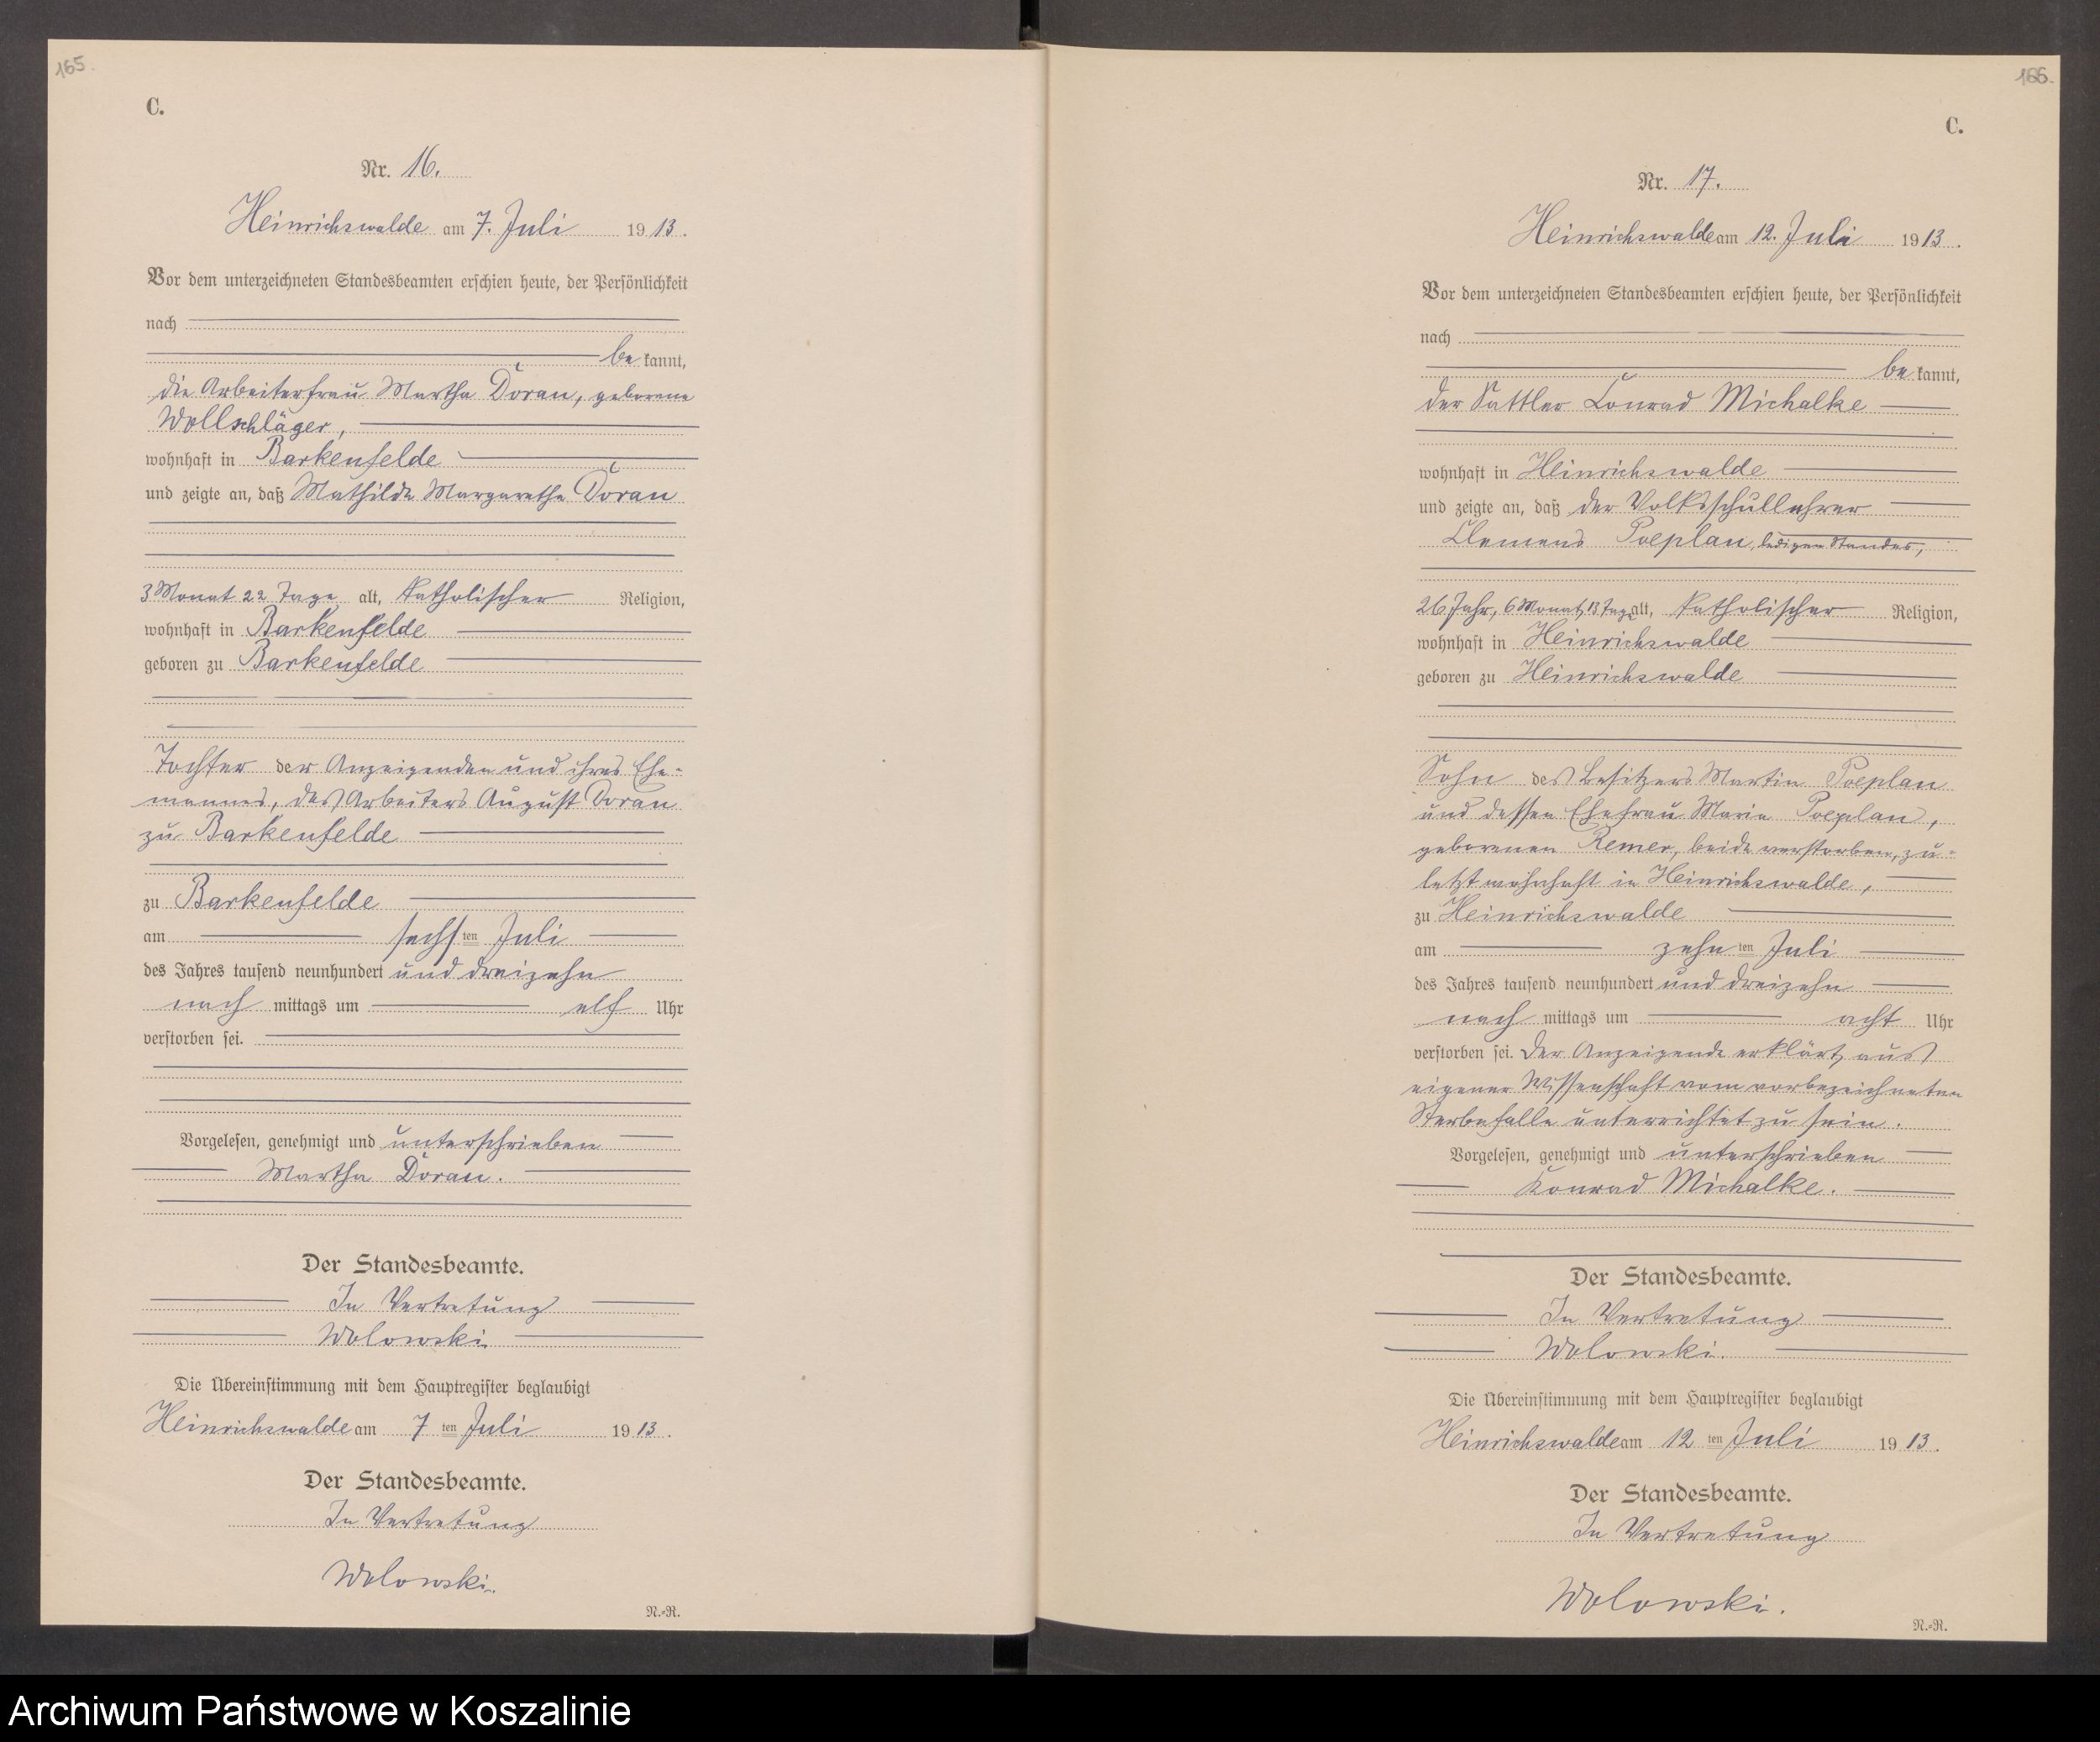 165.
C.
Nr. 16.
Heinrichswalde am 7. Juli 1913.
Vor dem unterzeichneten Standesbeamten erschien heute, der Persönlichkeit
nach
be kannt,
die Arbeiterfrau Martha Doran, geborene
Wollschläger,
wohnhaft in Barkenfelde
und zeigte an, daß Mathilde Margarethe Doran
3 Monat 22 Tage alt, katholischer Religion,
wohnhaft in Barkenfelde
geboren zu Barkenfelde
Tochter der Anzeigenden und ihres Ehe-
mannes, des Arbeiters August Doran
zu Barkenfelde
zu Barkenfelde
am sechsten Juli
des Jahres tausend neunhundert und dreizehn
nach mittags um elf Uhr
verstorben sei.
Vorgelesen, genehmigt und unterschrieben
Martha Doran.
Der Standesbeamte.
In Vertretung
Wolowski
Die Übereinstimmung mit dem Hauptregister beglaubigt
Heinrichswalde am 7 ten Juli 1913.
Der Standesbeamte.
In Vertretung
Wolowski.
N.-R.
166.
C.
Nr. 17.
Heinrichswalde am 12. Juli 1913.
Vor dem unterzeichneten Standesbeamten erschien heute, der Persönlichkeit
nach
be kannt,
der Sattler Conrad Michalke
wohnhaft in Heinrichswalde
und zeigte an, daß der Volksschullehrer
Clemens Poeplau, ledigen Standes,
26 Jahr, 6 Monat, 13 Tage alt, katholischer Religion,
wohnhaft in Heinrichswalde
geboren zu Heinrichswalde
Sohn des Besitzers Martin Poeplau
und dessen Ehefrau Maria Poeplau,
geborenen Remer, beide verstorben, zu-
letzt wohnhaft in Heinrichswalde,
zu Heinrichswalde
am zehn ten Juli
des Jahres tausend neunhundert und dreizehn
nach mittags um acht Uhr
verstorben sei. Der Anzeigende erklärt, aus
eigener Wissenschaft vom vorbezeichneten
Sterbefalle unterrichtet zu sein.
Vorgelesen, genehmigt und unterschrieben
Konrad Michalke.
Der Standesbeamte.
In Vertretung
Wolowski.
Die Übereinstimmung mit dem Hauptregister beglaubigt
Heinrichswalde am 12 ten Juli 1913.
Der Standesbeamte.
In Vertretung
Wolowski.
N.-R.
Archiwum Państwowe w Koszalinie